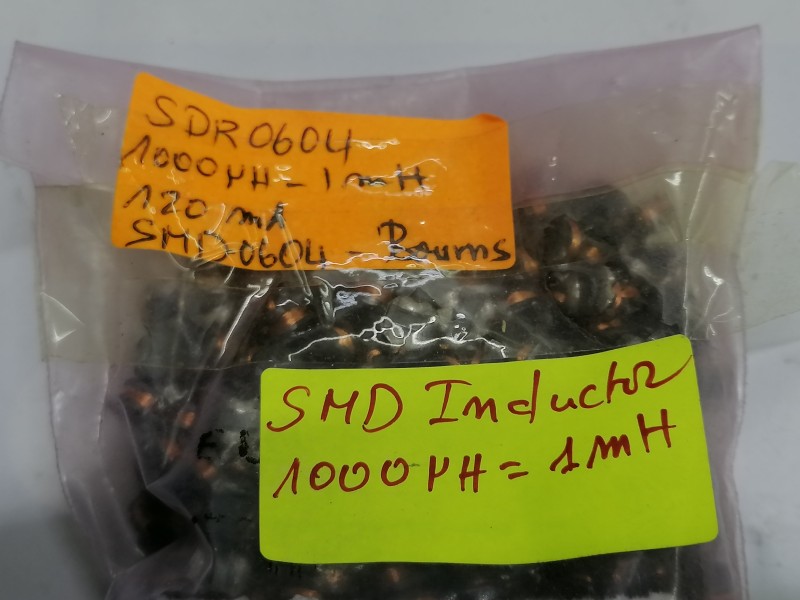 SDR0604
1000µH = 1mH
120 mA
SMD-0604 - Bourns
SMD Inductor
1000µH = 1mH